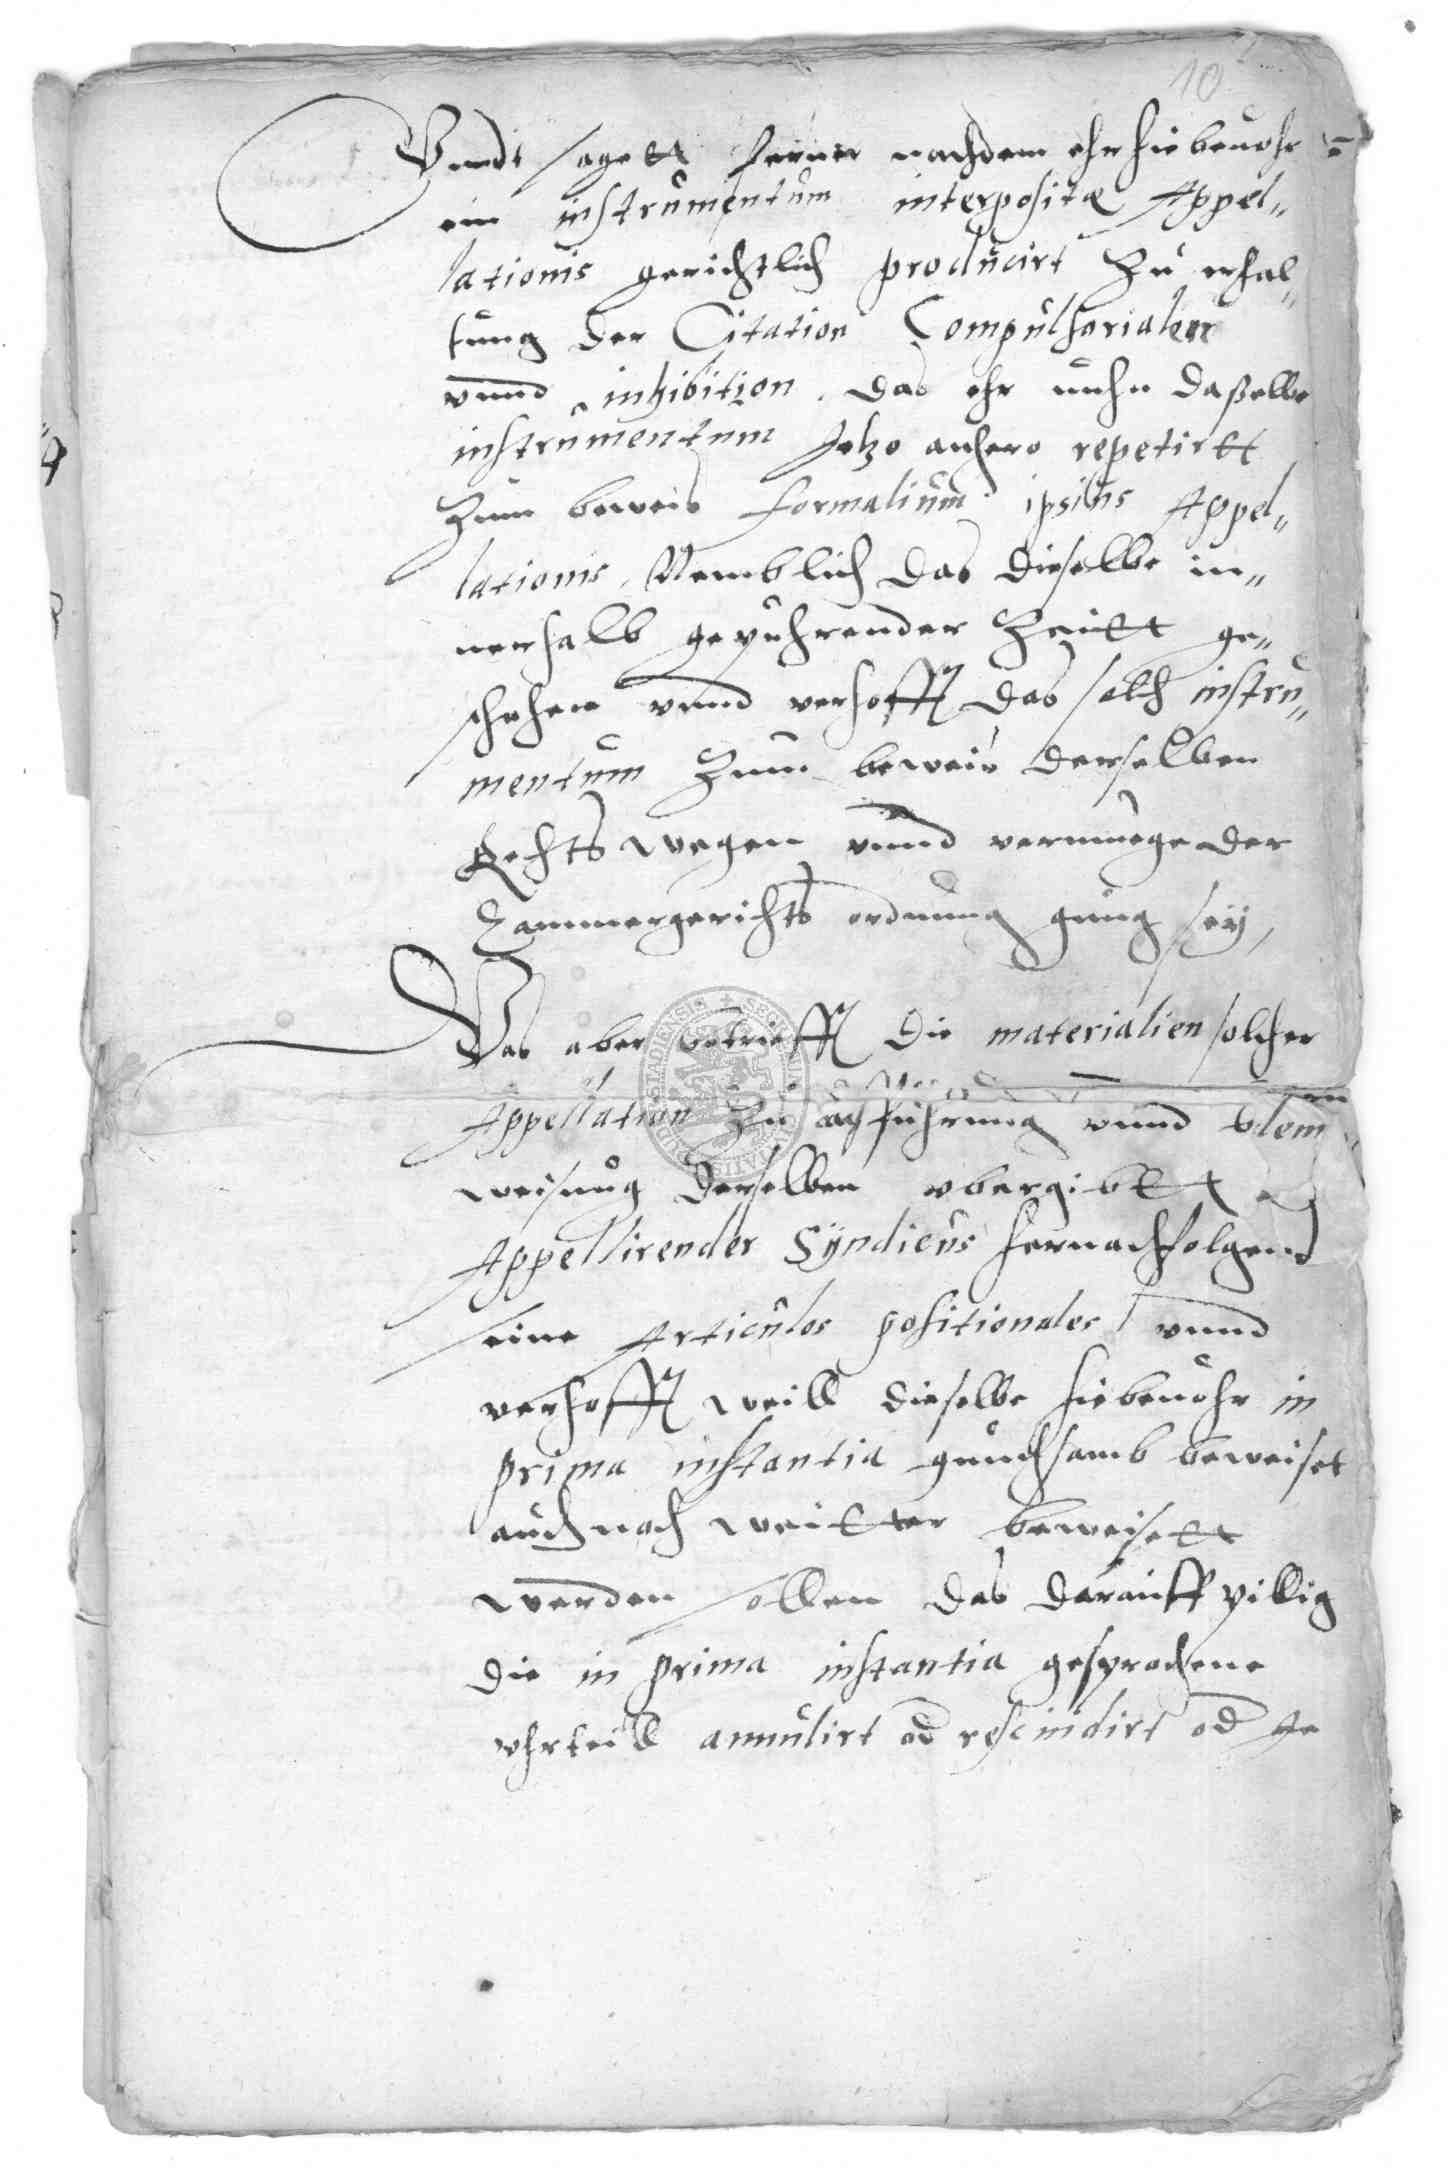 10
Vnndt sagett ferner nachdem ehr hiebeuohr
ein instrumentum interpositæ Appel„
lationis gerichtlich producirt zu erhal„
tung der Citation Compulsorialen
vnnd inhibition. das ehr nuhn daßelbe
instrumentum Jetzo anhero repetirtt
Zum beweis formalium ipsius Appel„
lationis, Nemblich das dieselbe in„
nerhalb gepuhrender Zeitt ge„
schehen vnnd verhofft das solch instru„
mentum Zum beweis derselben
Rechts wegen vnnd vermuege der
Cammergerichts ordnung gnug sey,
Was aber betrifft die materialien solcher
Appellation Zu außfuhrung vnnd
weisung derselben vbergibtt
Appellirender Syndicus hernachfolgend
seine Articulos positionales vnnd
verhofft weill dieselbe hiebeuohr in
prima instantia gnuchsamb beweiset
auch noch weitter beweisett
werden sollen das darauff pillig
die in prima instantia gesprochene
vhrteill annulirt od rescindirt od Je